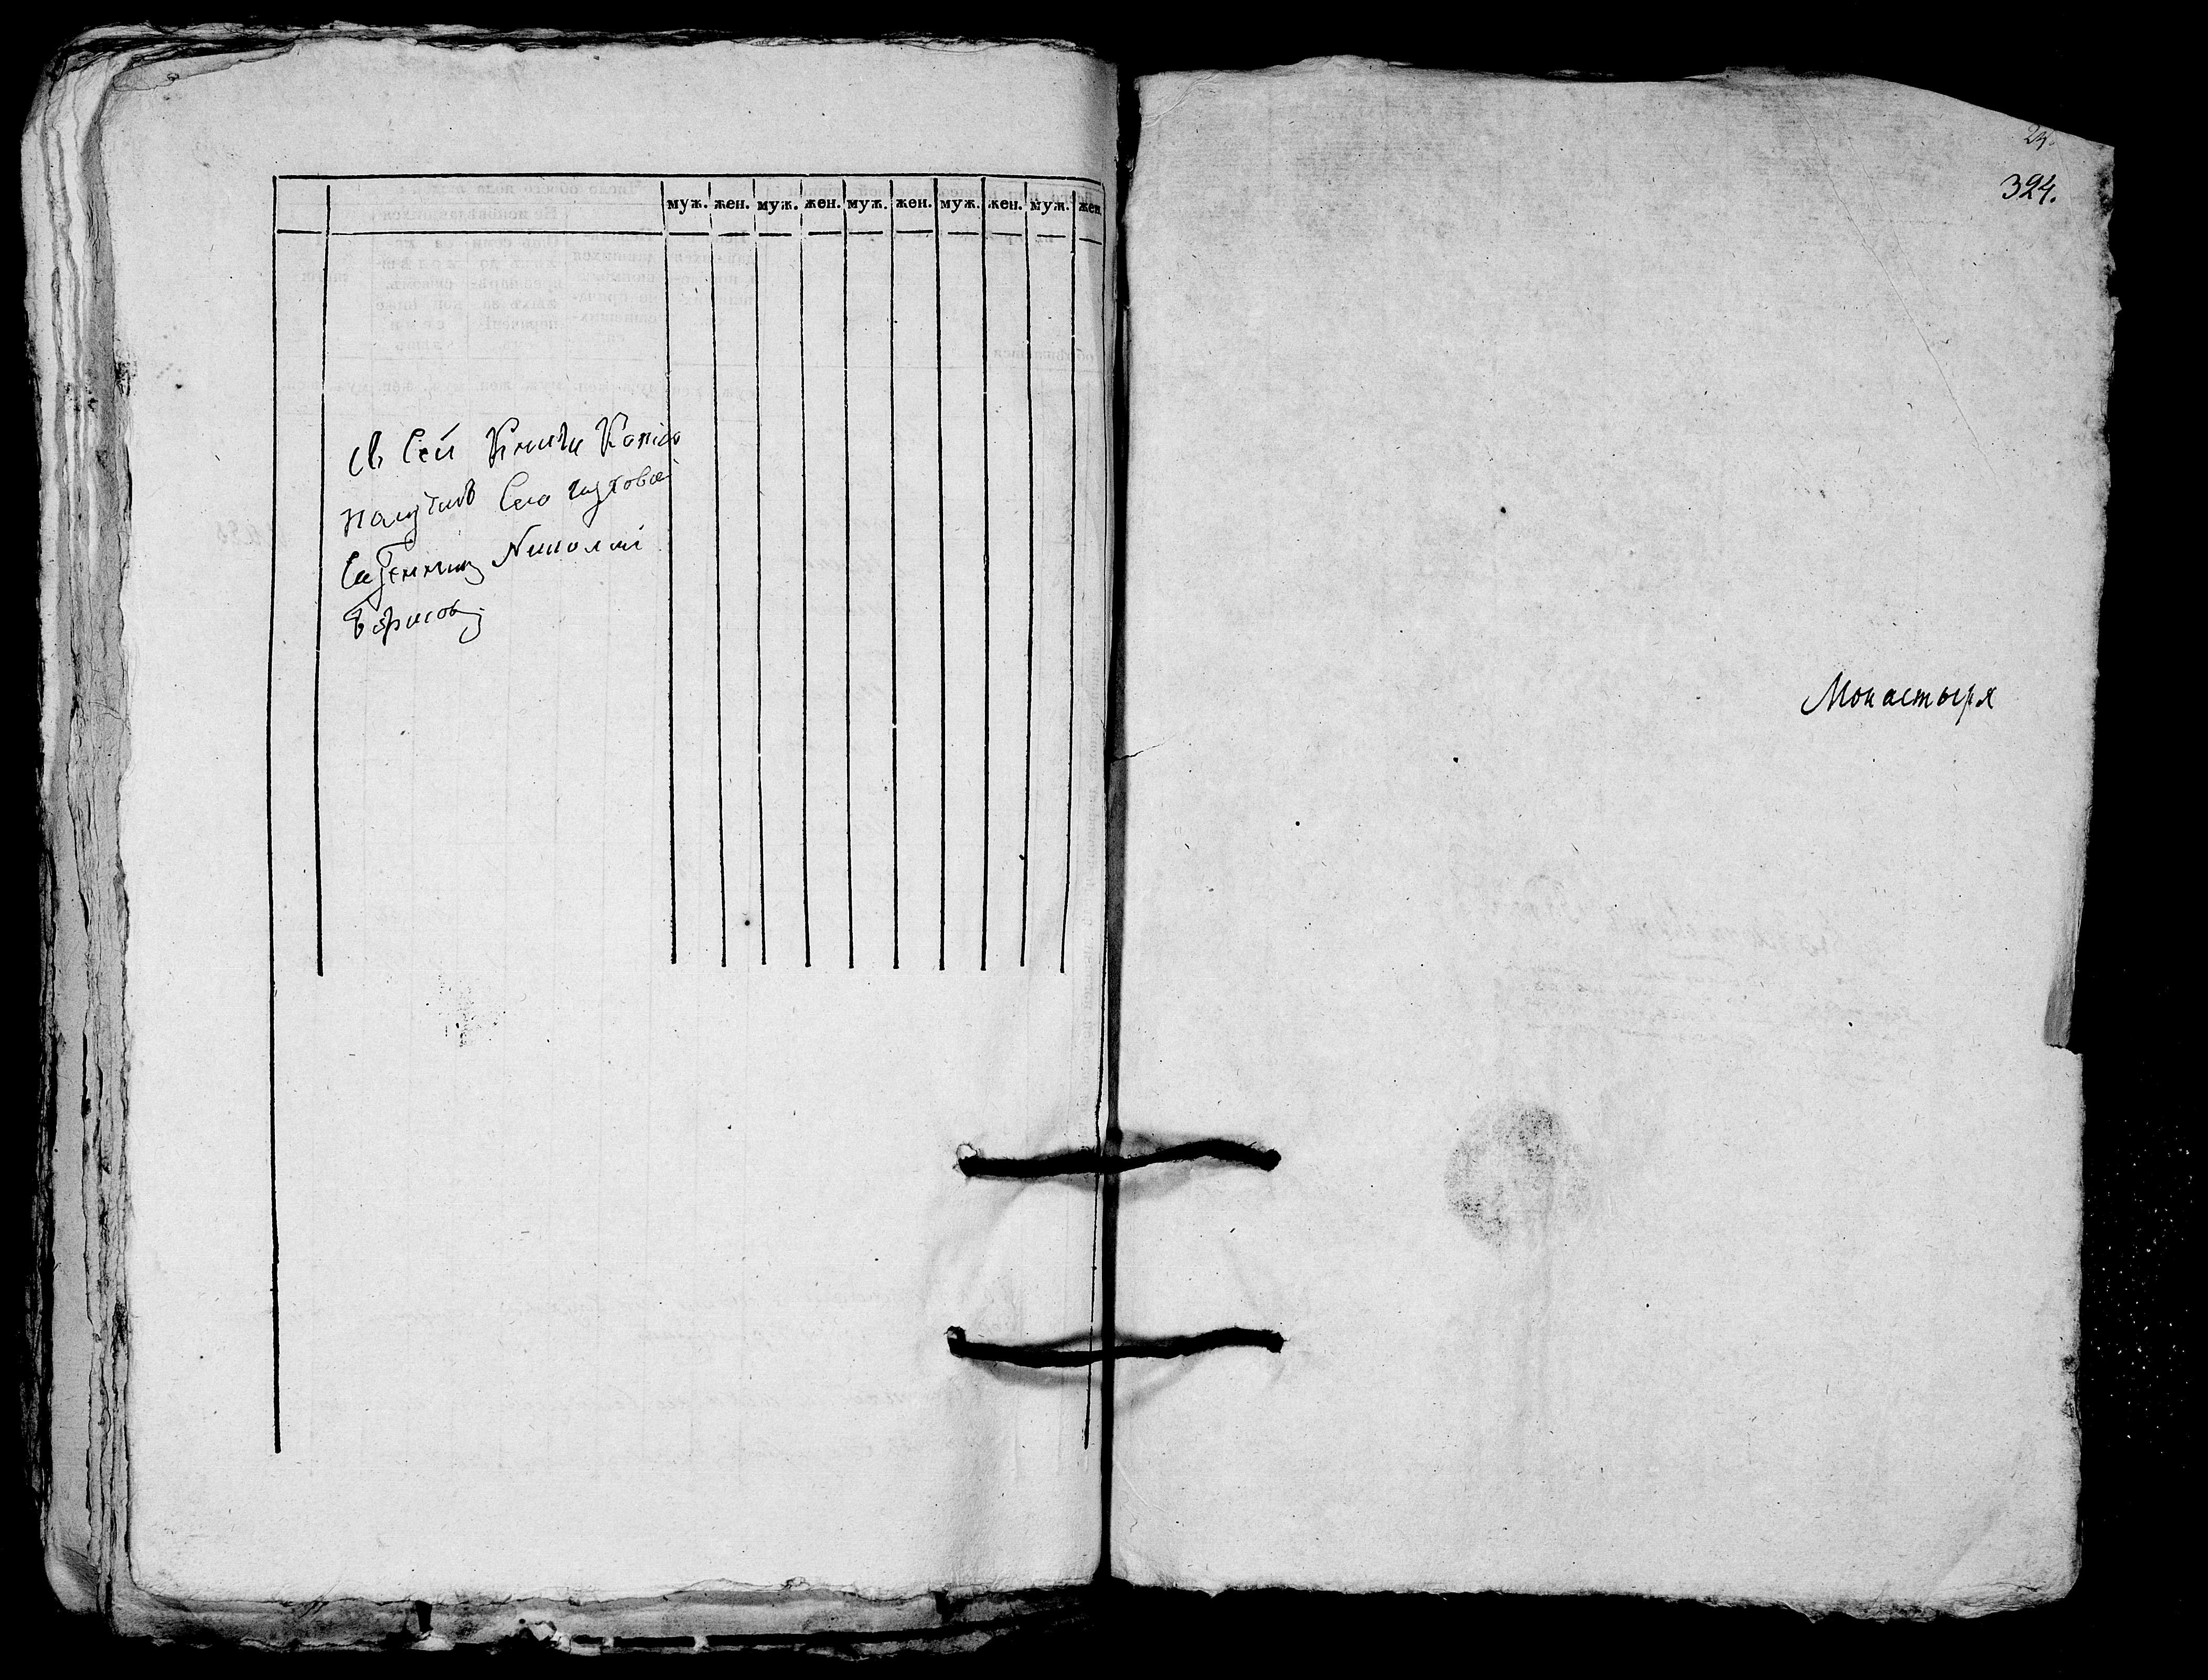 муж. жен. муж. жен. муж. жен. муж. жен. муж. жен.
Съ Сей Книги Копію
получилъ Села
Священникъ Николай
Борисовъ
24.
324.
Монастыря